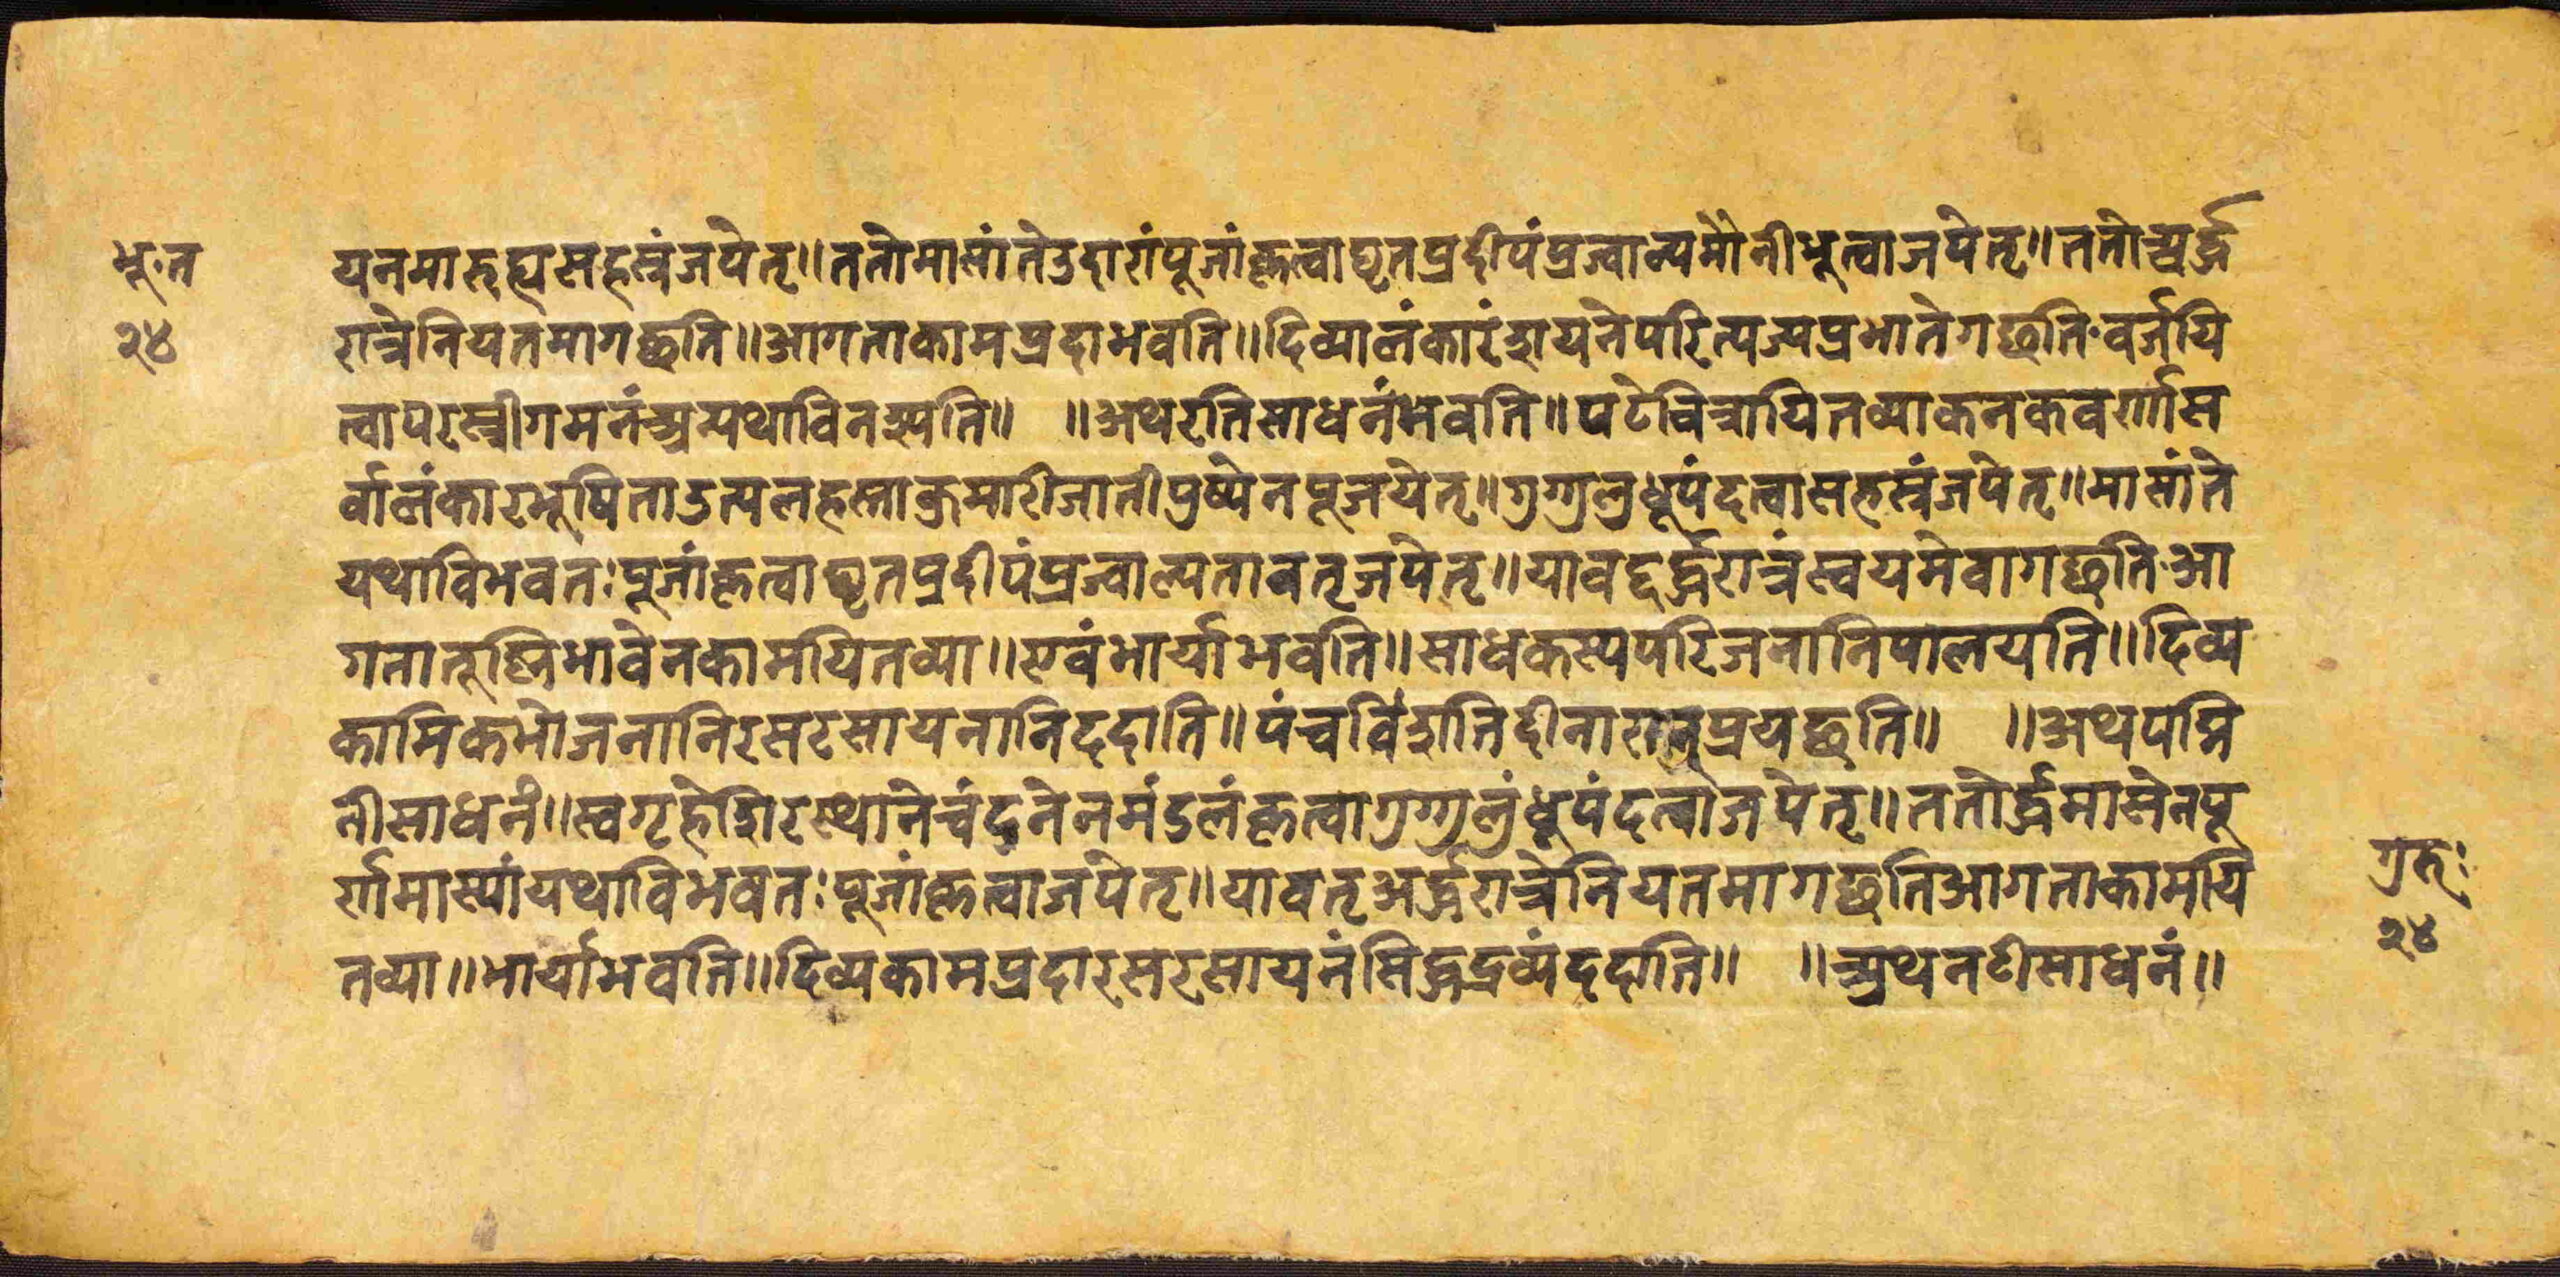 भू॰त
२४
यनमारुह्यसहस्त्रंजपेत्॥ततोमासांतेउदारांपूजांकृत्वाघृतप्रदीपंप्रज्वाल्यमौनीभूत्वाजपेत्॥ततोअर्द्ध
रात्रेनियतमागच्छति॥आगताकामप्रदाभवति॥दिव्यालंकारंशयनेपरित्यज्यप्रभातेगछति॰वर्जयि
त्वापरस्त्रीगमनंअन्यथाविनश्यति॥ ॥अथरतिसाधनंभवति॥पटेचित्रायितव्याकनकवर्णास
र्वालंकारभूषिताउत्पलहस्ताकुमारीजातीपुष्पेनपूजयेत्॥गुग्गुलुधूपंदत्वासहस्त्रंजपेत्॥मासांते
यथाविभवतःपूजांकृत्वाघृतप्रदीपंप्रज्वाल्यतावत्जपेत्॥यावदर्द्धरात्रंस्वयमेवागछति॰आ
गतातूष्निभावेनकामयितव्या॥एवंभार्याभवति॥साधकस्यपरिजनानिपालयति॥दिव्य
कामिकभोजनानिरसरसायनानिददाति॥पंचविंशतिदीनारान्प्रयच्छति॥ ॥अथपद्मि
नीसाधनं॥स्वगृहेशिरस्थानेचंदनेनमंडलंकृत्वागुग्गुलुंधूपंदत्वाजपेत्॥ततोर्द्धमासेनपू
र्णामास्यांयथाविभवतःपूजांकृत्वाजपेत्॥यावत्अर्द्धरात्रेनियतमागच्छतिआगताकामयि
तव्या॥भार्याभवति॥दिव्यकामप्रदारसरसायनंसिद्धद्रव्यंददाति॥ ॥अथनटीसाधनं॥
गुरुः
२४